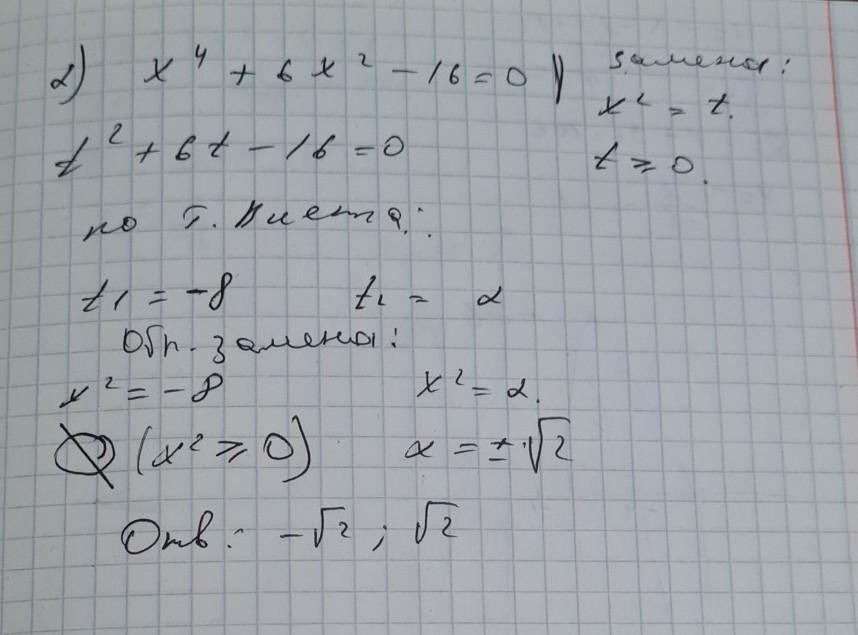 2) x⁴ + 6x² - 16 = 0 | замена:
x² = t.
t² + 6t - 16 = 0
t ≥ 0.
по т. Виета:
t₁ = -8 t₂ = 2
Обр. замена:
x² = -8 x² = 2.
∅ (x² ≥ 0) x = ±√2
Отв: -√2 ; √2